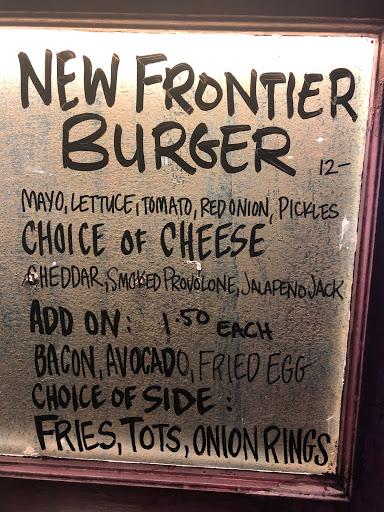 NEW FRONTIER
BURGER 12-
MAYO, LETTUCE, TOMATO, RED ONION, PICKLES
CHOICE OF CHEESE
CHEDDAR, SMOKED PROVOLONE, JALAPENO JACK
ADD ON: 1.50 EACH
BACON, AVOCADO, FRIED EGG
CHOICE OF SIDE:
FRIES, TOTS, ONION RINGS